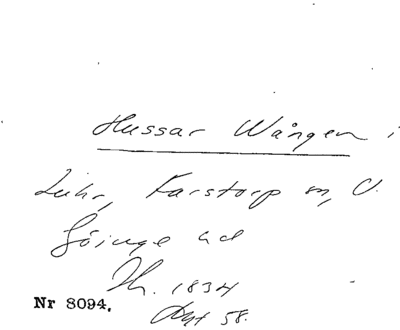 Hussar Wången i
Luhr, Farstorp sn, V.
Göinge hd
Th. 1834
Nr 8094.
58.